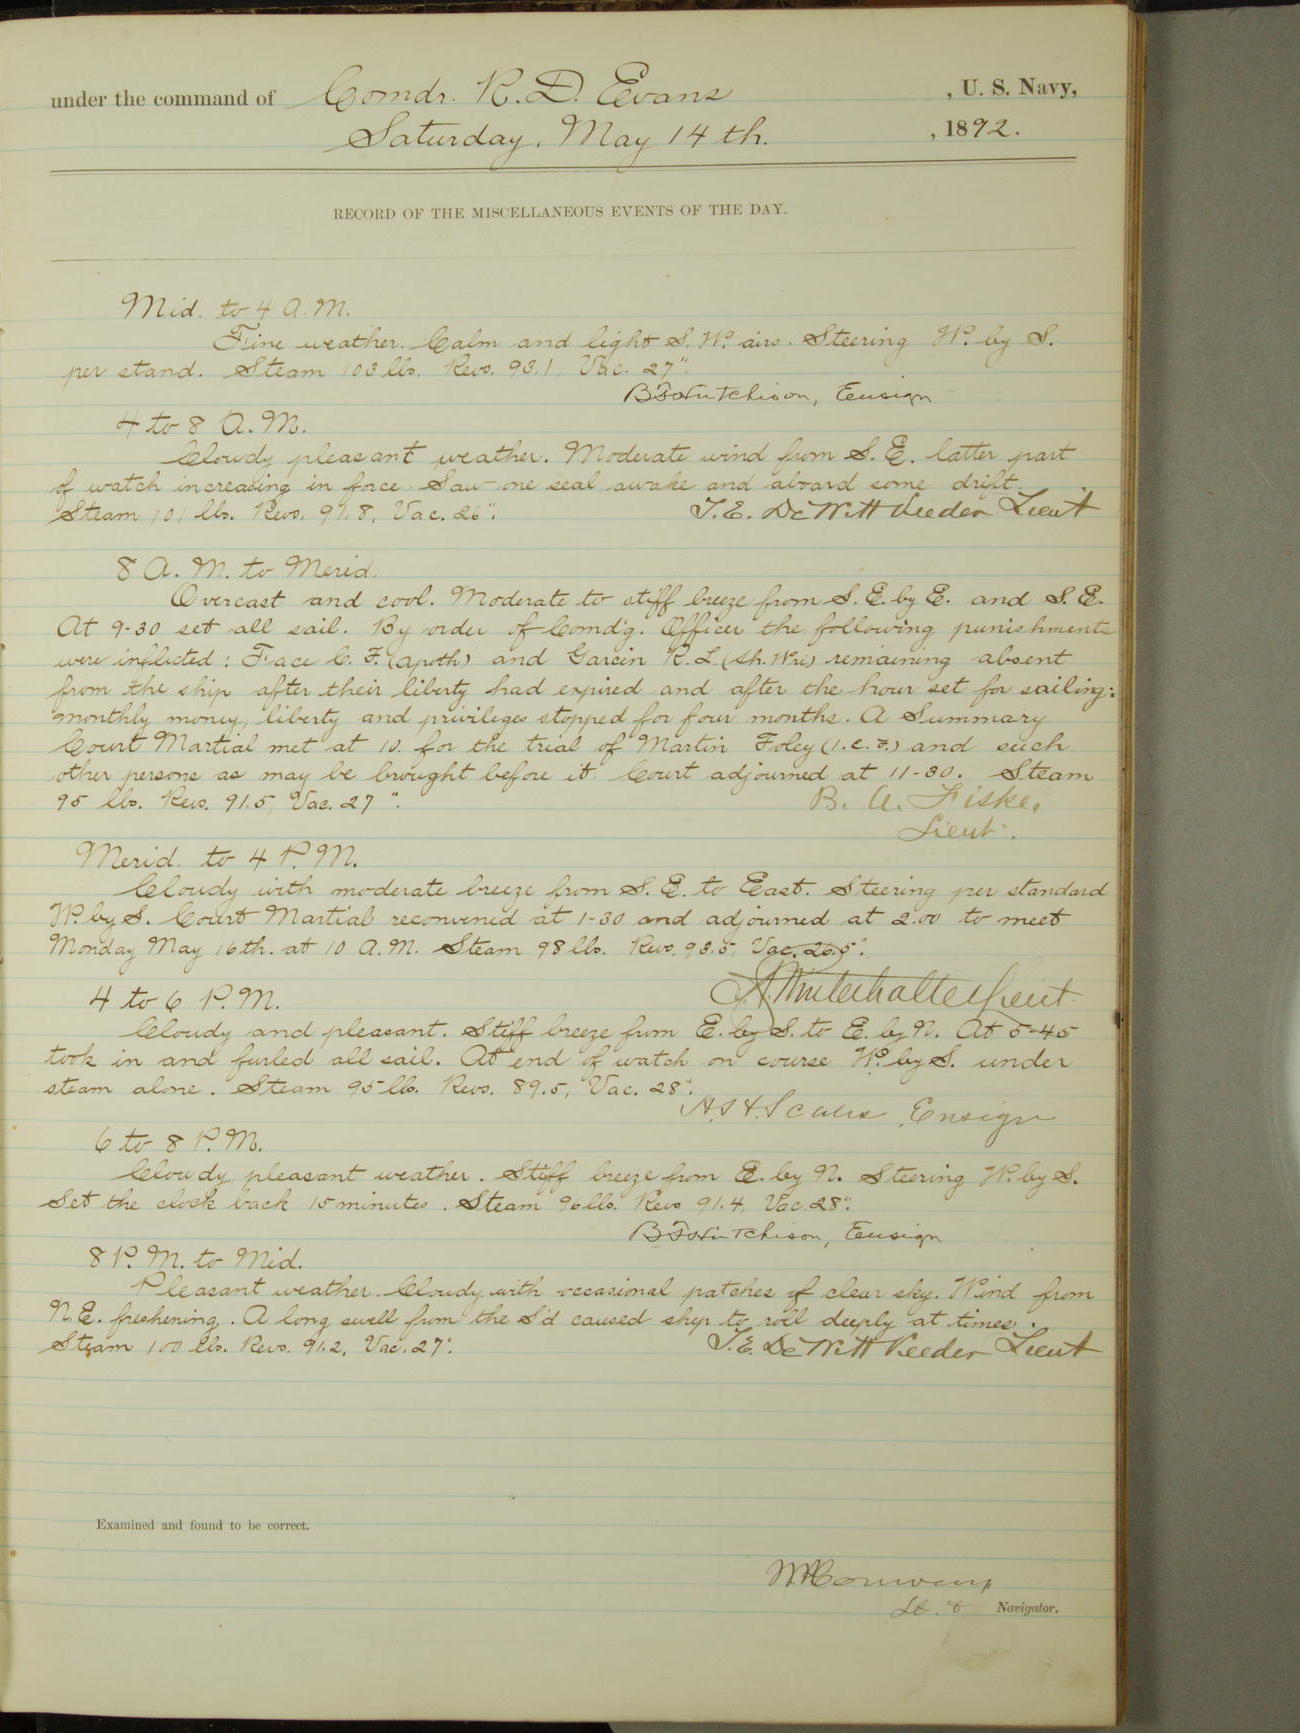 under the command of Comdr. R. D. Evans, U. S. Navy,
Saturday, May 14th., 1892.
RECORD OF THE MISCELLANEOUS EVENTS OF THE DAY.
Mid. to 4 A.M.
Fine weather. Calm and light S.W. airs. Steering W. by S.
per stand. Steam 103 lbs. Revs. 93.1, Vac. 27".
B F Hutchison, Ensign
4 to 8 A.M.
Cloudy pleasant weather. Moderate wind from S.E. latter part
of watch increasing in force. Saw one seal awake and aboard some drift.
Steam 101 lbs. Revs. 91.8, Vac. 26".
T. E. DeWitt Veeder Lieut
8 A.M. to Merid.
Overcast and cool. Moderate to stiff breeze from S.E. by E. and S.E.
At 9-30 set all sail. By order of Comd'g. Officer the following punishments
were inflicted: Face C. F. (apoth) and Garcin R. L. (Sh. Wri) remaining absent
from the ship after their liberty had expired and after the hour set for sailing:
monthly money, liberty and privileges stopped for four months. A Summary
Court Martial met at 10. for the trial of Martin Foley (1.c.F.) and such
other persons as may be brought before it. Court adjourned at 11-30. Steam
95 lbs. Revs. 91.5, Vac. 27".
B. A. Fiske,
Lieut.
Merid. to 4 P.M.
Cloudy with moderate breeze from S.E. to East. Steering per standard
W. by S. Court Martial reconvened at 1-30 and adjourned at 2.00 to meet
Monday May 16th. at 10 A.M. Steam 98 lbs. Revs. 93.5, Vac. 26.5".
Winterhalter Lieut
4 to 6 P.M.
Cloudy and pleasant. Stiff breeze from E. by S. to E. by N. At 5-45
took in and furled all sail. At end of watch on course W. by S. under
steam alone. Steam 95 lbs. Revs. 89.5, Vac. 28".
Ensign
6 to 8 P.M.
Cloudy, pleasant weather. Stiff breeze from E. by N. Steering W. by S.
Set the clock back 15 minutes. Steam 96 lbs. Revs 91.4, Vac. 28".
B F Hutchison, Ensign
8 P.M. to Mid.
Pleasant weather. Cloudy with occasional patches of clear sky. Wind from
N.E. freshening. A long swell from the S'd caused ship to roll deeply at times.
Steam 100 lbs. Revs. 91.2, Vac. 27".
T. E. DeWitt Veeder Lieut
Examined and found to be correct.
Lt. & Navigator.